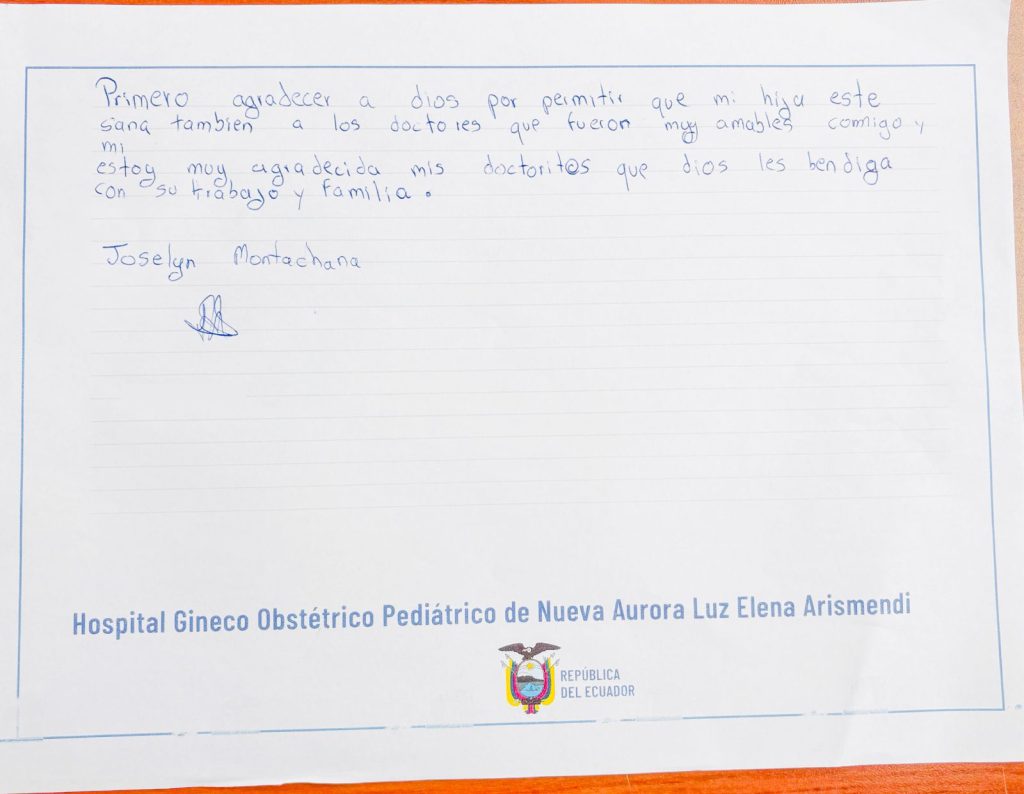 Primero agradecer a dios por permitir que mi hija este
sana tambien a los doctores que fueron muy amables comigo y
mi
estoy muy agradecida mis doctoritos que dios les bendiga
con su trabajo y familia.
Joselyn Montachana
Hospital Gineco Obstétrico Pediátrico de Nueva Aurora Luz Elena Arismendi
REPÚBLICA
DEL ECUADOR